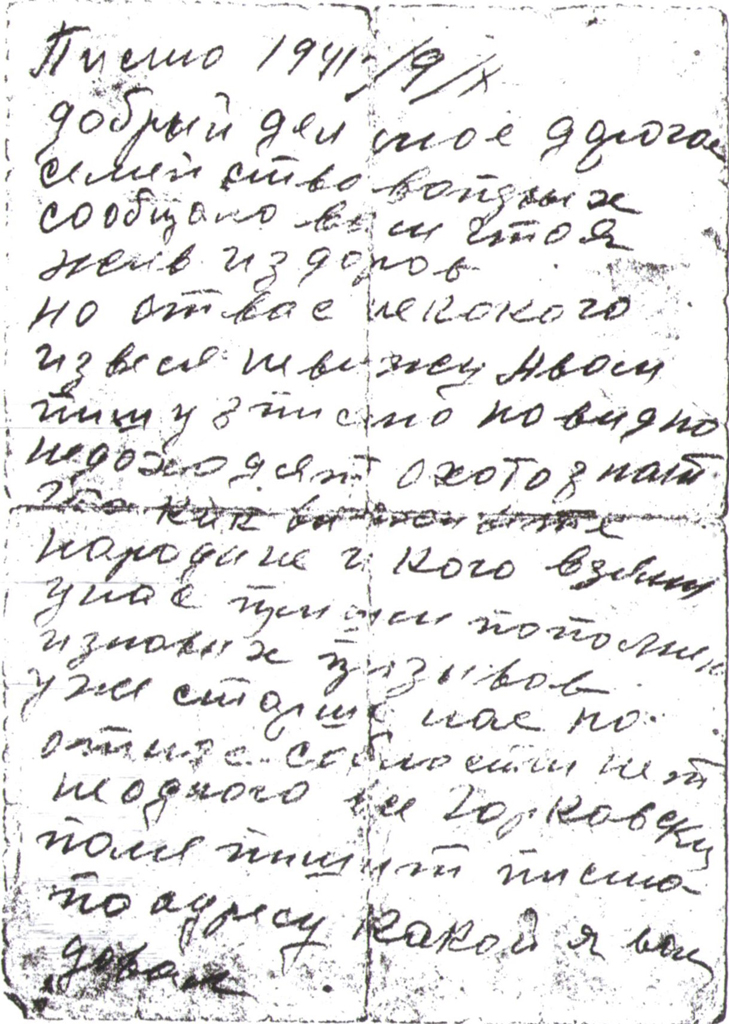 Писмо 1941/9/X
добрый ден мое дорогое
семейство
сообщаю вам что я
жив издоров
но отвас некокого
извеся невижу Явам
пишу 3 писмо но видно
недоходят охото знат
что как вы живете
народине и кого взяли
унас пришли пополнен
изновых призывов
уже старше нас но
отнас области нет
неодного все Горковски
поля пишит писма
по адресу какой я вам
довал